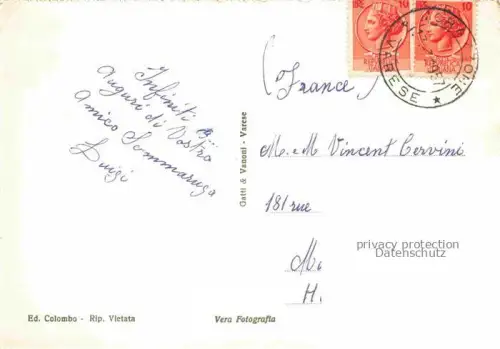 10
10
VARESE
Infiniti
auguri di Vostro
Amico Sommaruga
Luigi
(France)
M. e M Vincent Cervini
181 rue
M.
H.
privacy protection
Datenschutz
Gatti & Vanoni - Varese
Ed. Colombo - Rip. Vietata
Vera Fotografia